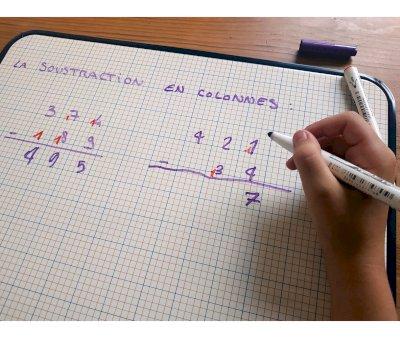 LA SOUSTRACTION EN COLONNES :
3 17 14
- 1 18 9
4 9 5
4 2 11
- 13 4
7